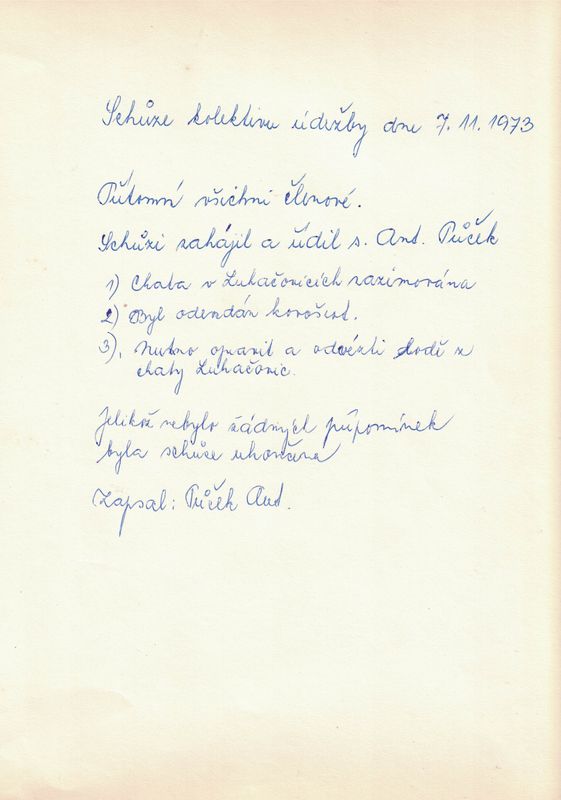 Schůze kolektivu údržby dne 7.11.1973
Přítomni všichni členové.
Schůzi zahájil a řídil s. Ant. Půček
1) Chata v Luhačovicích zazimována
2) Byl odevzdán
3). Nutno opravit a odvézti lodě z
chaty Luhačovic.
Jelikož nebylo žádných připomínek
byla schůze ukončena
Zapsal: Půček Ant.